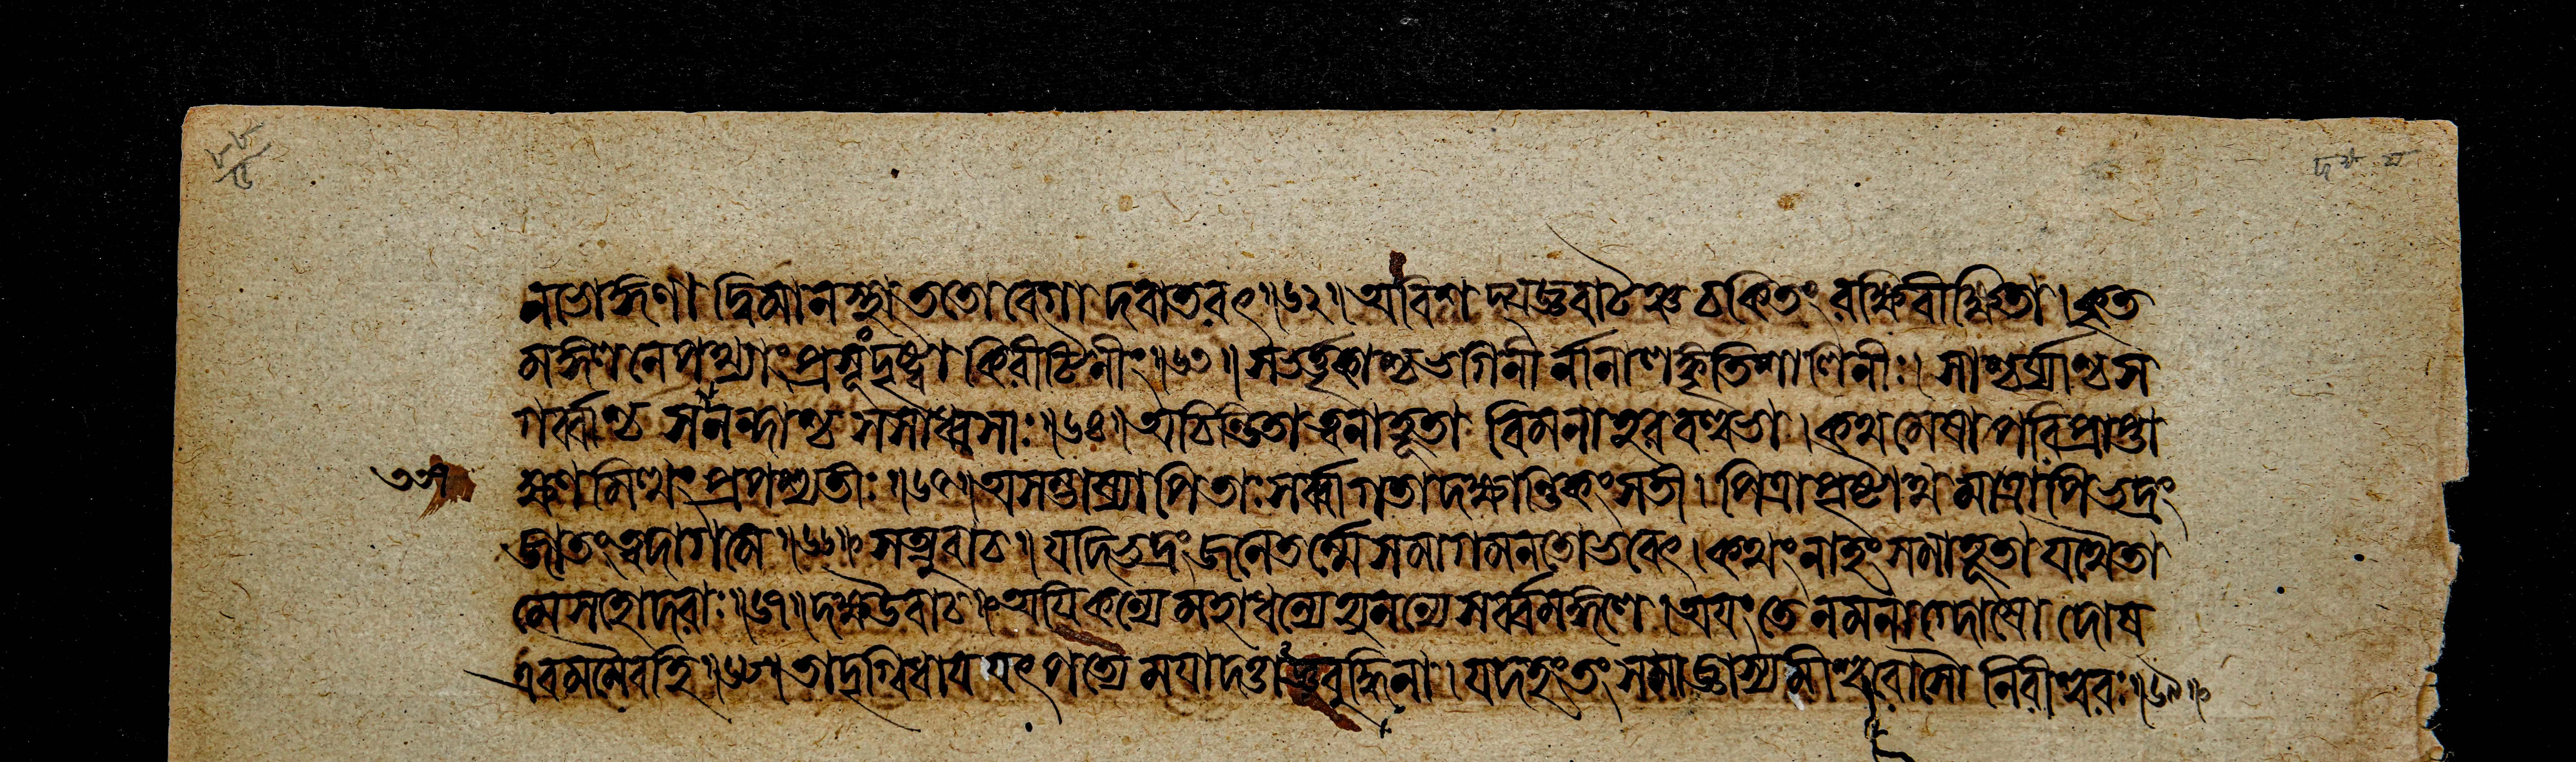 নাঙ্গণা দ্বিমানস্থা ততো বেগা দবাতরৎ ॥৬২॥ অবিশ দ্যজ্ঞবাটঞ্চ চকিতং রক্ষিবীক্ষিতা । কৃত
মঙ্গলনেপথ্যাং প্রসূং দৃষ্ট্বা কিরীটিনীং ॥৬৩॥ সভর্তৃকাশ্চ ভগিনী র্নবালঙ্কৃতিশালিনীঃ । সাশ্চর্য্যাশ্চ স
গর্ব্বাশ্চ সানন্দাশ্চ সসাধ্বসাঃ ॥৬৪॥ অচিন্তিতা ত্বনাহূতা বিমানাদ্ধরবল্লভা । কথমেষা পরিপ্রাপ্তা
ক্ষণমিত্থং প্রপশ্যতীঃ ॥৬৫॥ অসম্ভাষ্যাপি তাঃ সর্ব্বা গতা দক্ষান্তিকং সতী । পিত্রা পৃষ্টাথ মাত্রাপি ভদ্রং
জাতং ত্বদাগমে ॥৬৬॥ সত্যুবাচ ॥ যদি ভদ্রং জনেতর্মে সমাগমনতো ভবেৎ । কথং নাহং সমাহূতা যথৈতা
মে সহোদরাঃ ॥৬৭॥ দক্ষ উবাচ ॥ অযি কন্যে মহাধন্যে হ্যনন্যে সর্ব্বমঙ্গলে । অযং তে ন মনাগ্দোষো দোষ
এব মমৈব হি ॥৬৮॥ তাদৃগ্বিধায যৎ পত্যে মযা দত্তা জ্ঞবুদ্ধিনা । যদহং তং সমাজ্ঞাস্য মীশ্বরোসৌ নিরীশ্বরঃ ॥৬৯॥